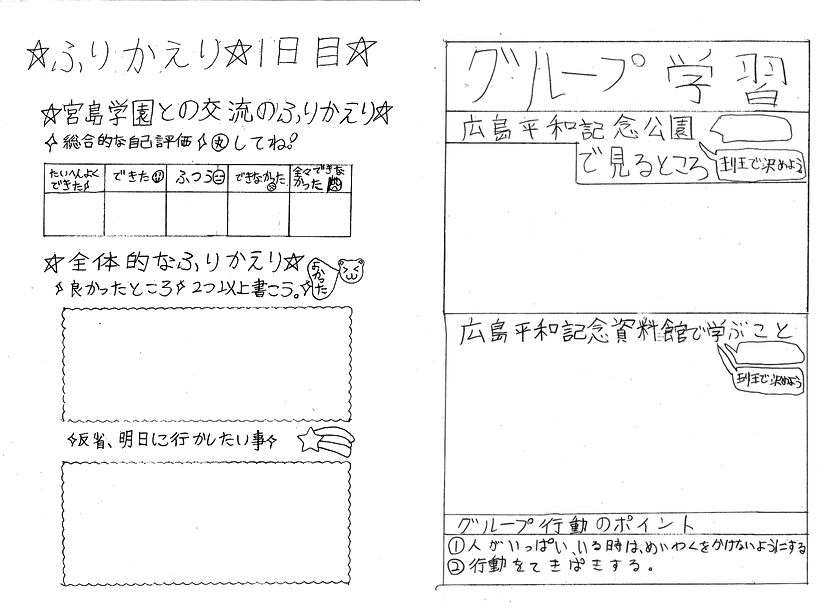 ☆ふりかえり☆1日目☆
☆宮島学園との交流のふりかえり☆
総合的な自己評価 丸してね!
たいへんよくできた
できた
ふつう
できなかった
全々できなかった
☆全体的なふりかえり☆
よかった
良かったところ 2つ以上書こう。
反省、明日に行かしたい事
グループ学習
広島平和記念公園
で見るところ
班で決めよう
広島平和記念資料館で学ぶこと
班で決めよう
グループ行動のポイント
①人がいっぱいいる時は、めいわくをかけないようにする
②行動をてきぱきする。